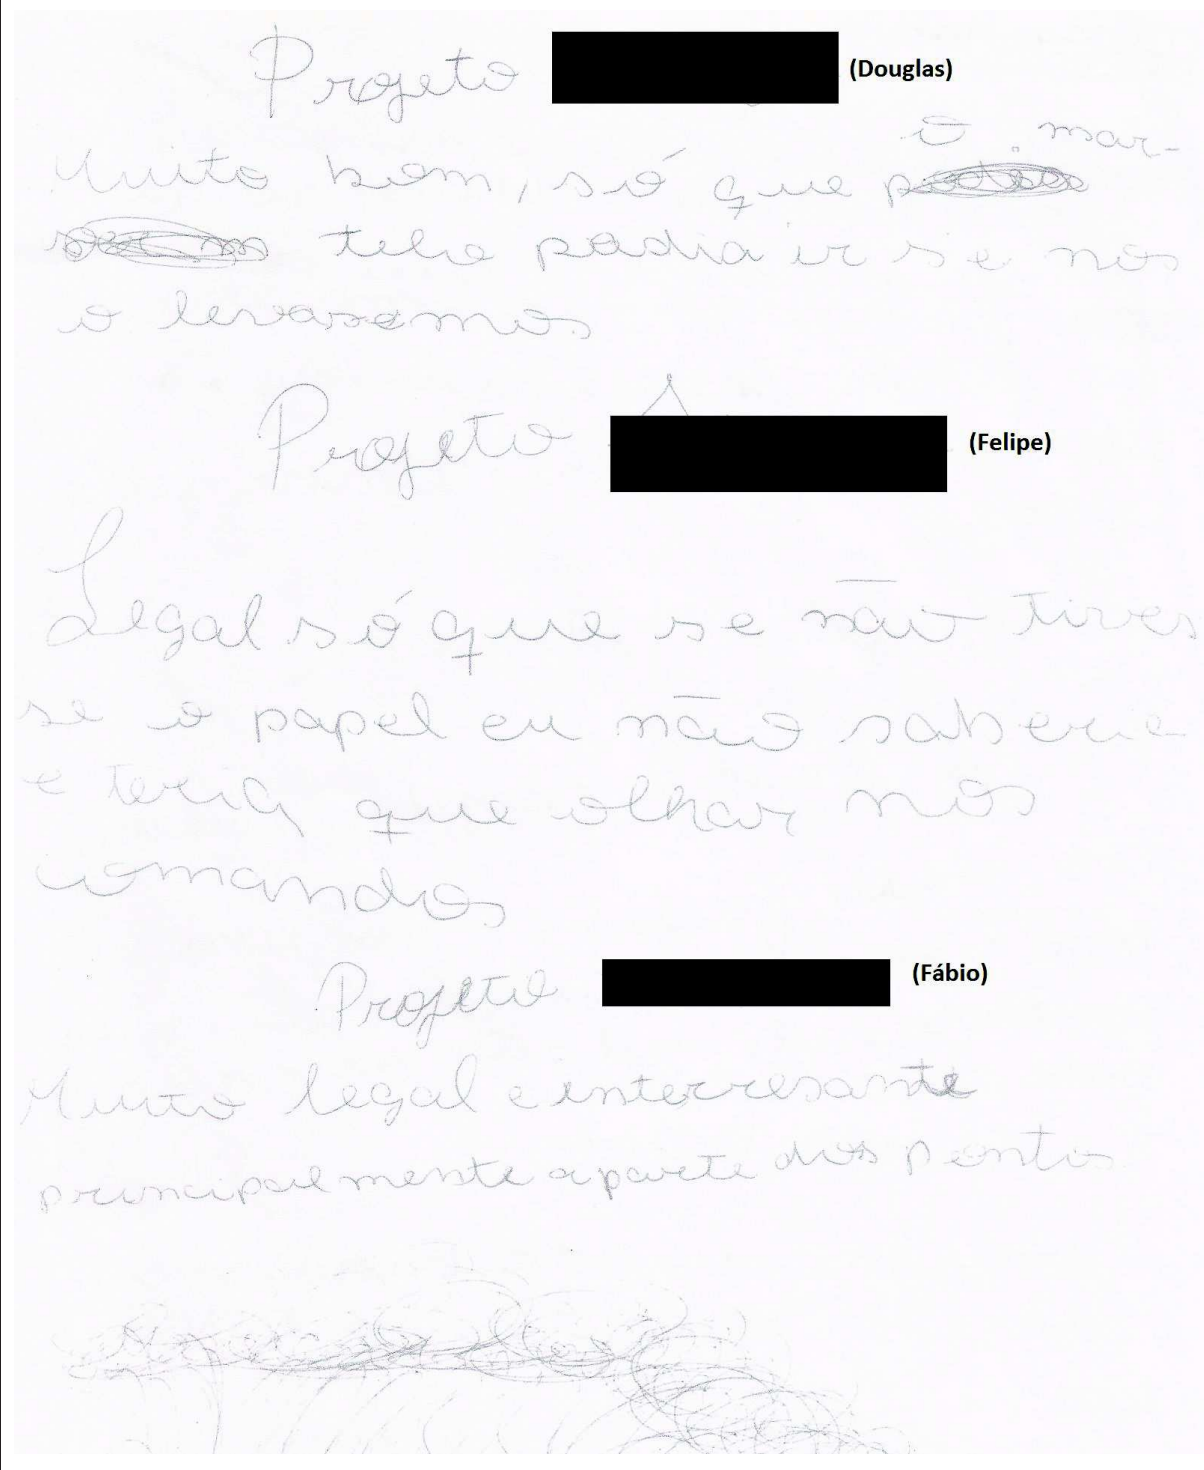 Projeto (Douglas)
o mar-
Muito bom, só que
telo podia ir se nos
o levasemos
Projeto (Felipe)
Legal só que se não tives
se o papel eu não saberia
e teria que olhar nos
comandos
Projeto (Fábio)
Muito legal e interresante
principalmente a parte dos pontos